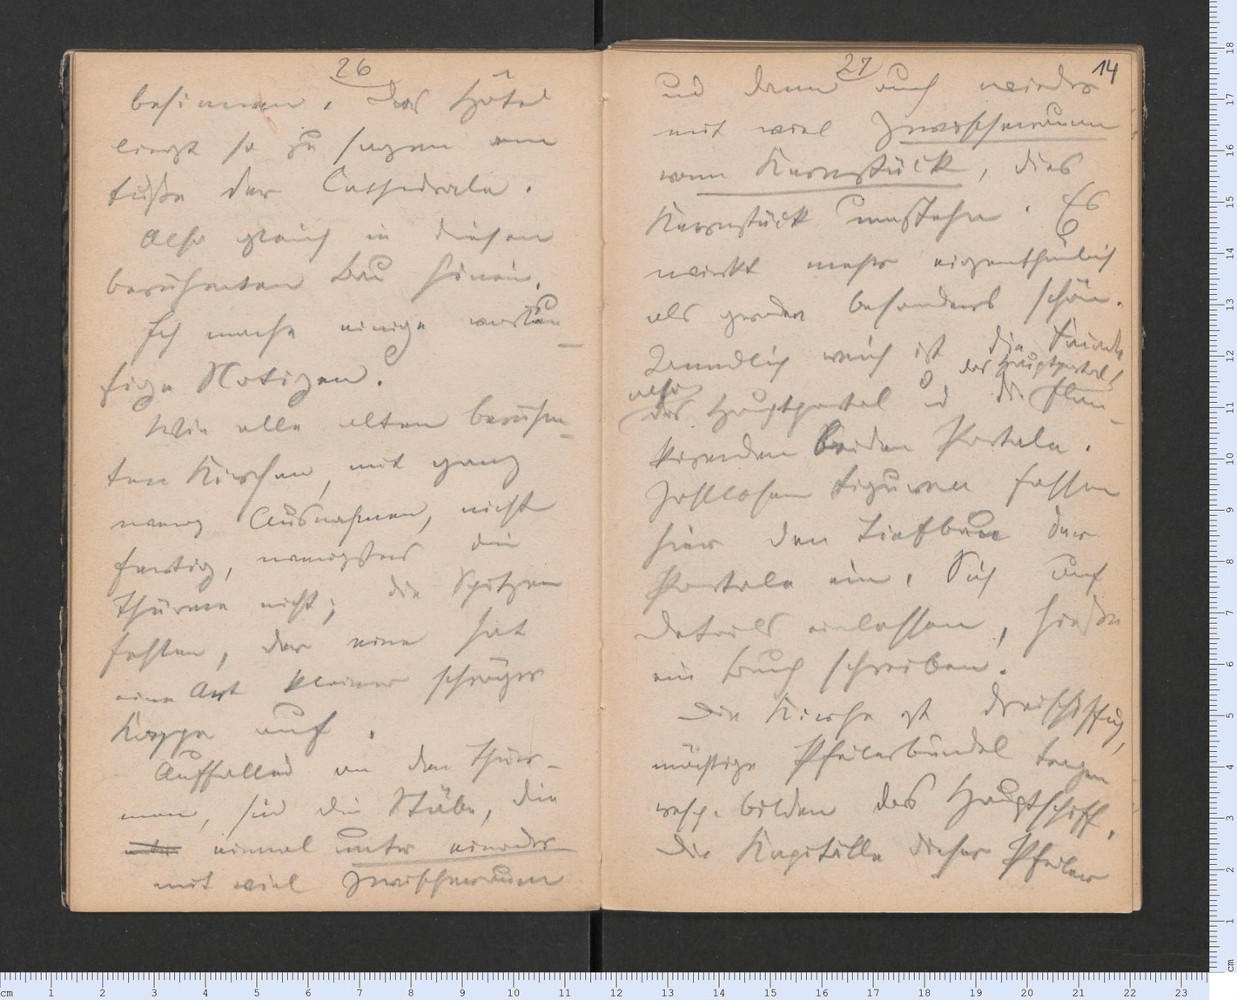 26
besinnen. Das Hôtel
liegt so zu sagen am
Fuße der Cathedrale.
Also gleich in diesen
berühmten Bau hinein.
Ich mache einige vorläu-
fige Notizen.
Wie alle alten berühm-
ten Kirchen, mit ganz
wenig Ausnahmen, nicht
fertig, wenigstens die
Thürme nicht; die Spitzen
fehlen, der eine hat
eine Art kleiner schräger
Kappe auf.
Auffallend an den Thür-
men, sind die Stäbe, die
einmal unter einander
mit viel Zwischenraum
27
14
und dann auch wieder
mit viel Zwischenraum
vom Kernstück, dies
Kernstück umstehn. Es
wirkt mehr eigenthümlich
als grade besonders schön.
Ziemlich reich ist die Fronte
des Hauptportals,
also
das Hauptportal und die flan-
kirenden beiden Portale.
Zahllosen Figuren fassen
hier den Tiefbau der
Portale ein. Sich auf
Details einlassen, hieße
ein Buch schreiben.
Die Kirche ist dreischiffig,
mächtige Pfeilerbündel tragen
resp. bilden das Hauptschiff.
Die Kapitälle dieser Pfeiler